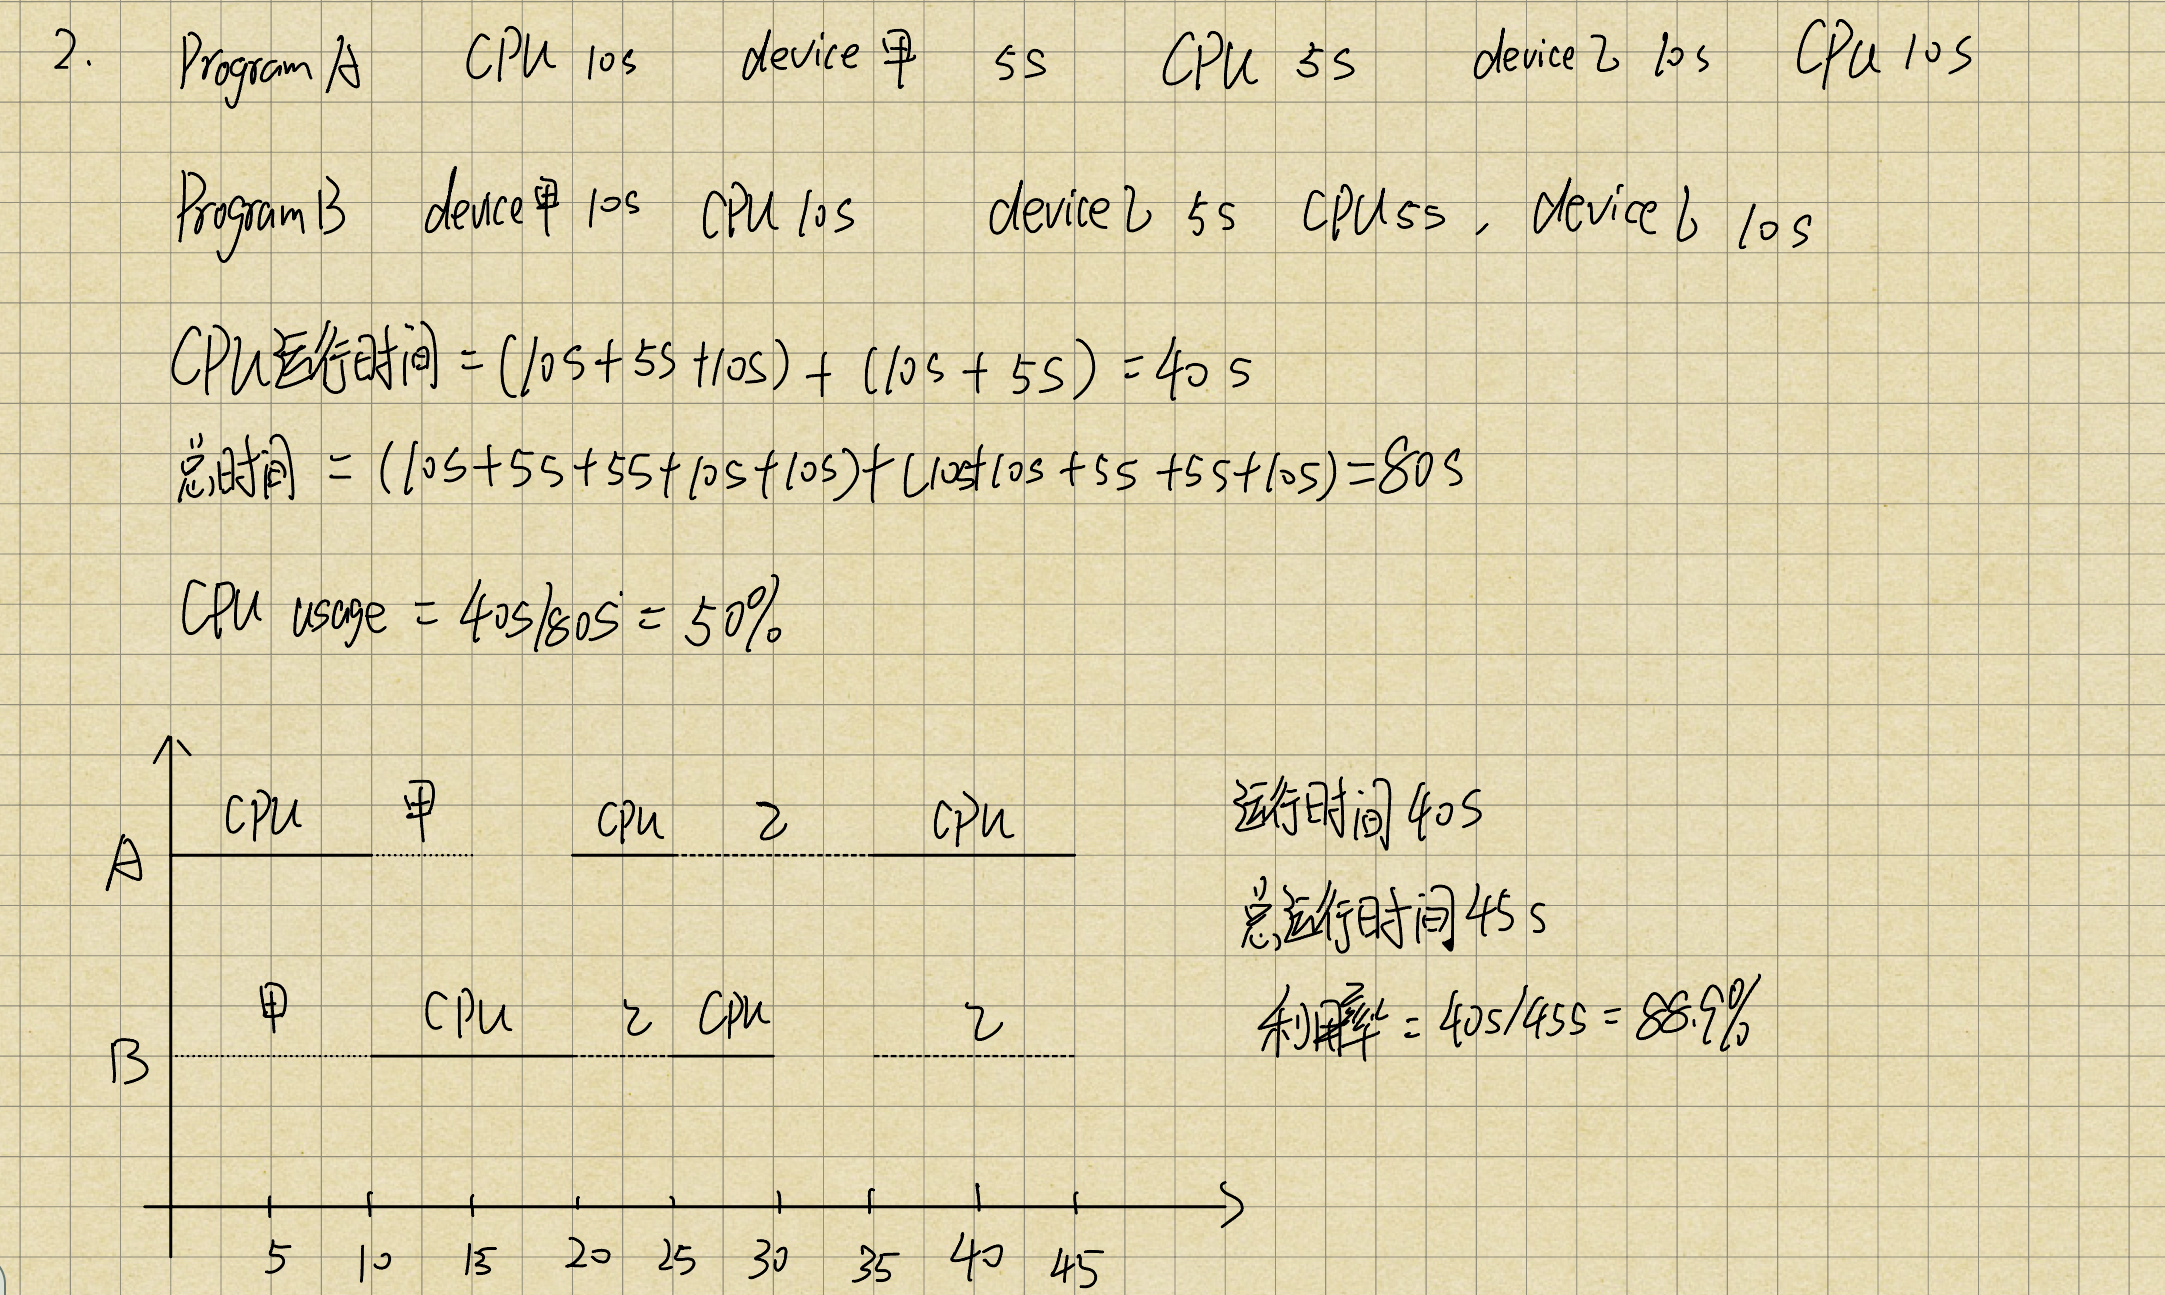 2. Program A CPU 10s device 甲 5s CPU 5s device 乙 10s CPU 10s
Program B device 甲 10s CPU 10s device 乙 5s CPU 5s, device 乙 10s
CPU运行时间 = (10s+5s+10s) + (10s + 5s) = 40s
总时间 = (10s+5s+5s+10s+10s)+(10s+10s+5s+5s+10s)=80s
CPU usage = 40s/80s = 50%
CPU 甲 CPU 乙 CPU
A
甲 CPU 乙 CPU 乙
B
5 10 15 20 25 30 35 40 45
运行时间 40s
总运行时间 45s
利用率 = 40s/45s = 88.9%